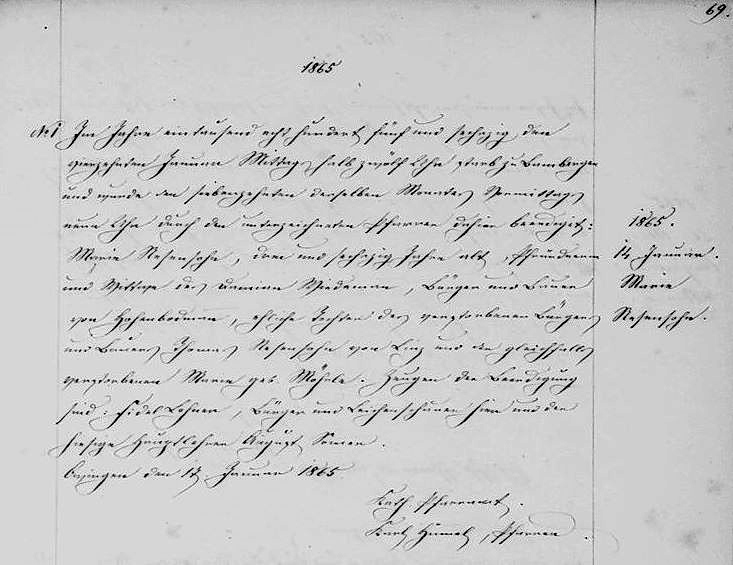 69.
1865
№ 1 Im Jahre ein tausend acht hundert fünf und sechszig den
vierzehnten Januar Mittags halb zwölf Uhr starb zu Bambergen
und wurde den siebenzehnten desselben Monates Vormittags
neun Uhr durch den unterzeichneten Pfarrer dahier beerdigt:
Marie Nesensohn, drei und sechszig Jahre alt, Pfründnerin
und Wittwe des Damian Wiedeman, Bürger und Bauer
von Hohenbodman, eheliche Tochter des verstorbenen Bürgers
und Bauers Thomas Nesensohn von Linz und der gleichfalls
verstorbenen Marie geb. Möhrle. Zeugen der Beerdigung
sind: Fidel Lohner, Bürger und Leichenschauer hier und der
hiesige Hauptlehrer August
den 17. Januar 1865.
Kath. Pfarramt.
Karl Himmel, Pfarrer.
1865.
14. Januar.
Marie
Nesensohn.